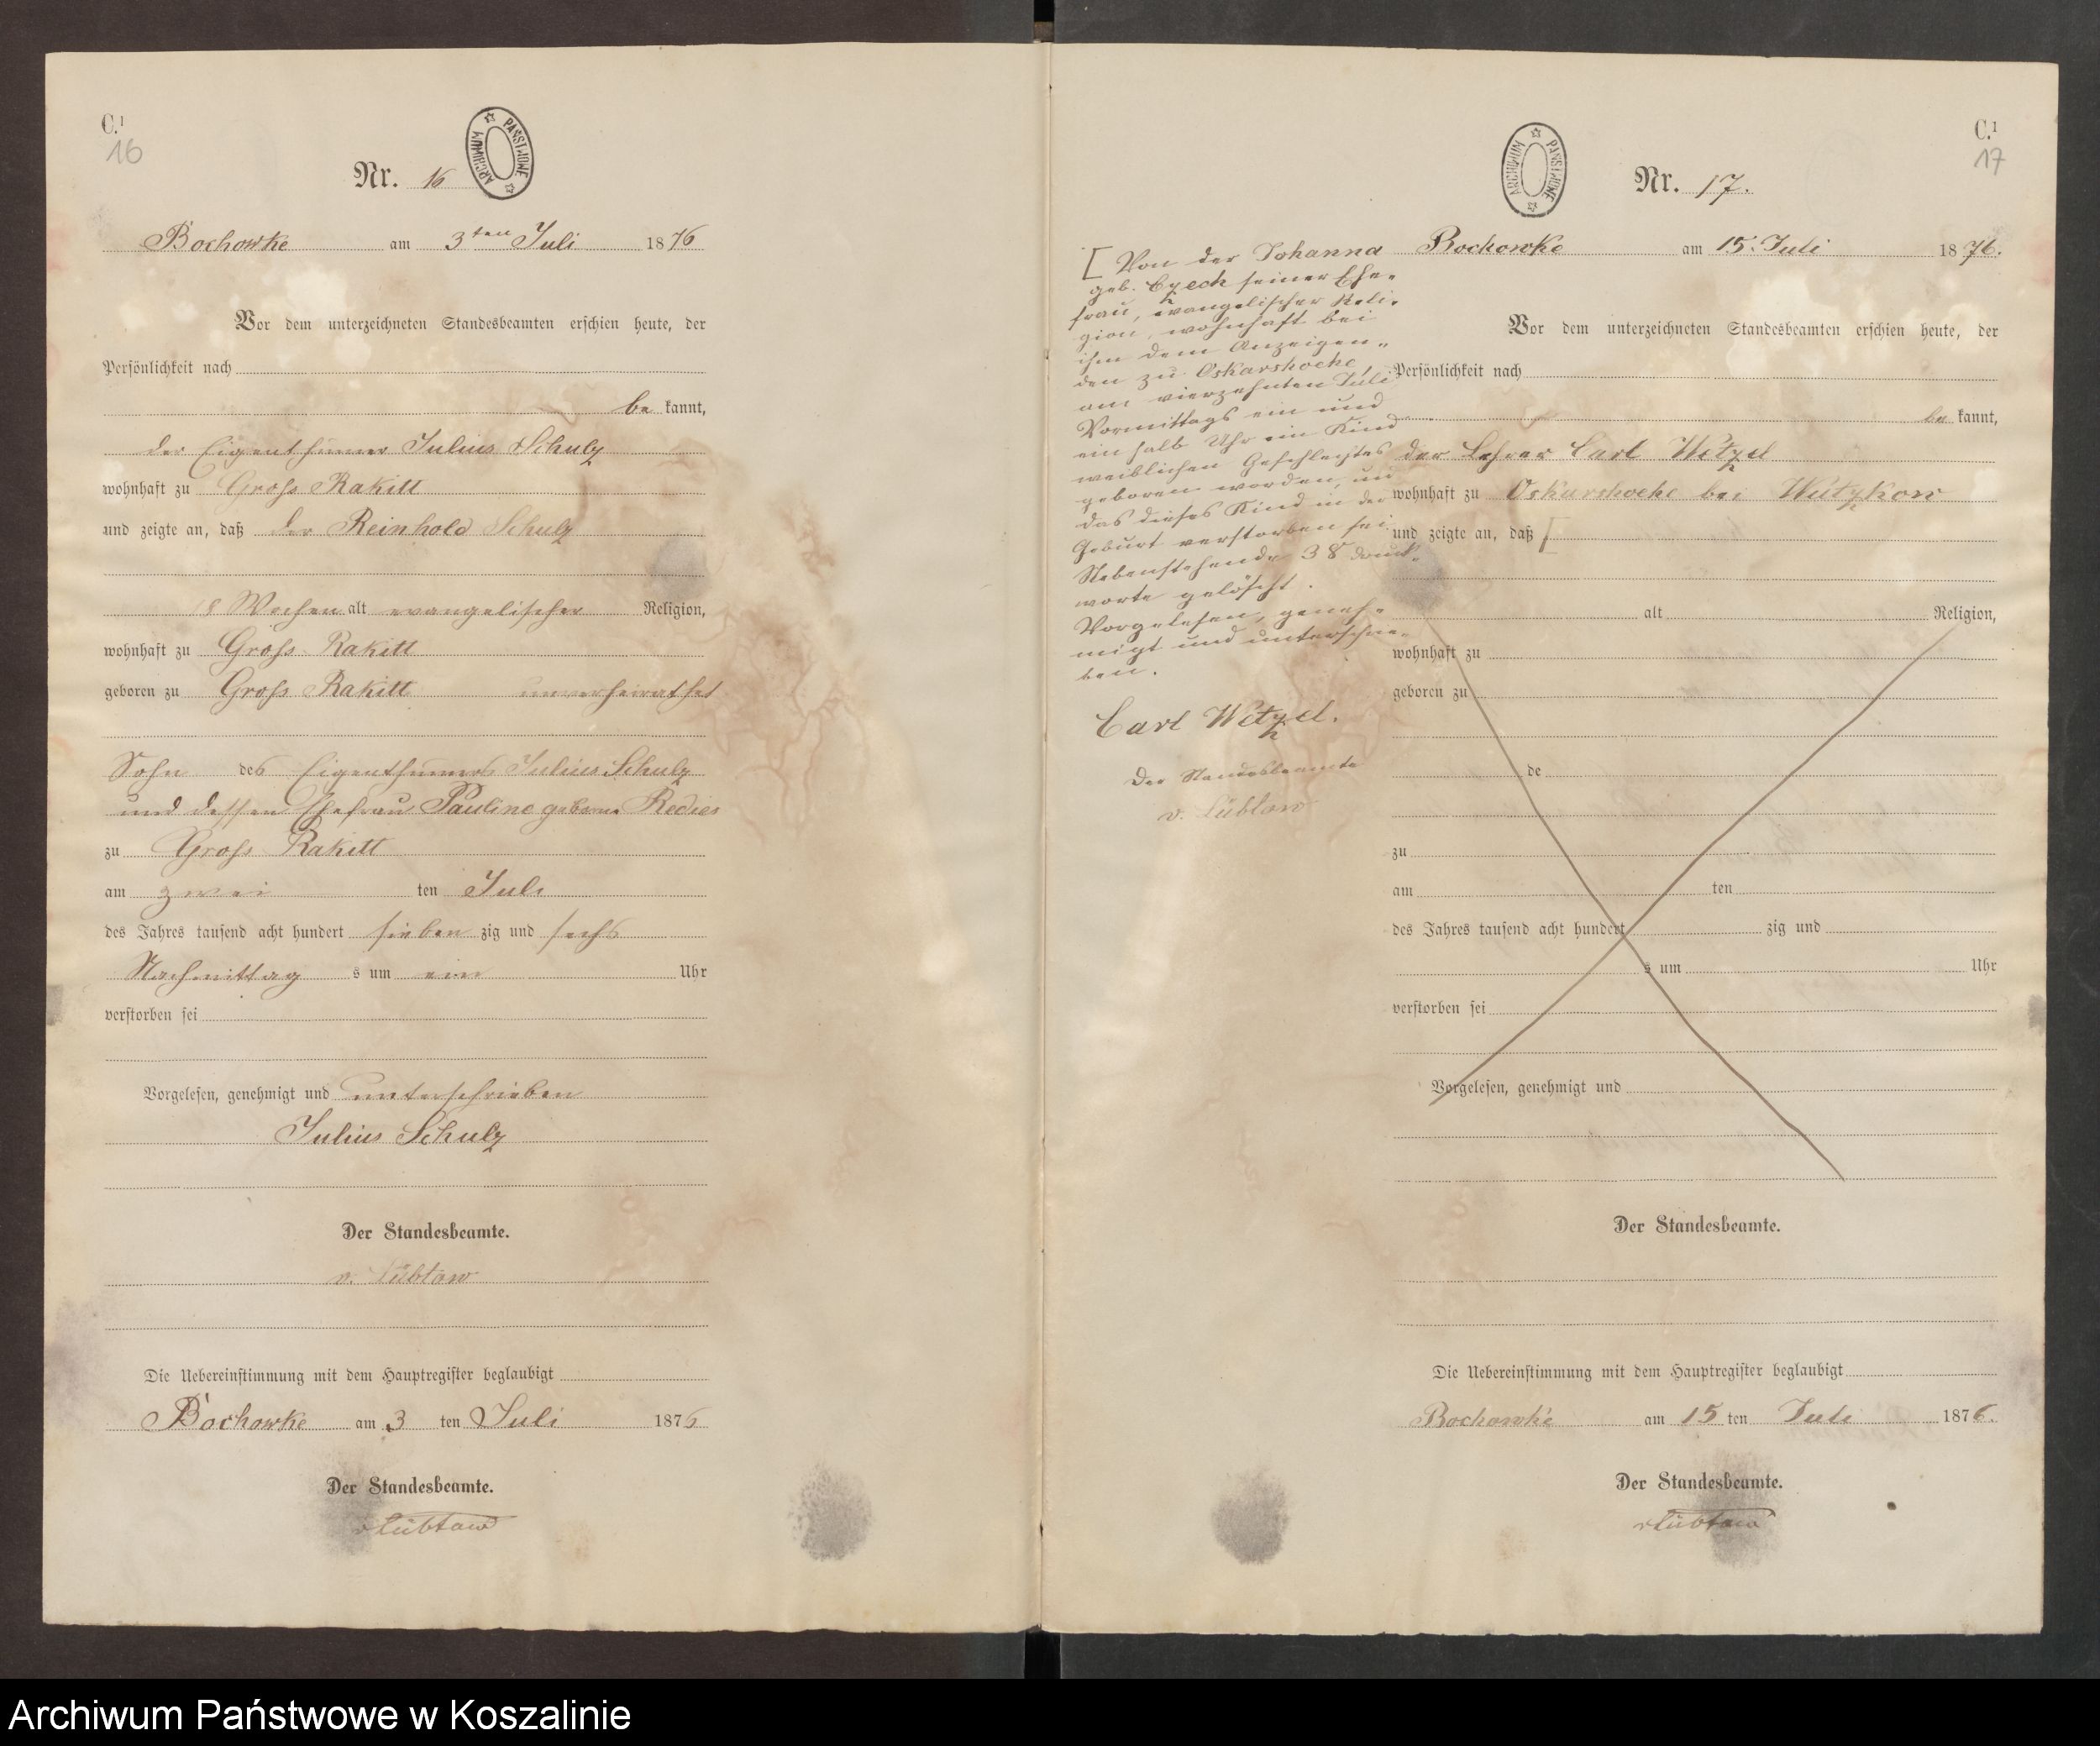 C.¹
16
Nr. 16
ARCHIWUM PAŃSTWOWE
Bochowke am 3ten Juli 1876
Vor dem unterzeichneten Standesbeamten erschien heute, der
Persönlichkeit nach
be kannt,
der Eigenthümer Julius Schulz
wohnhaft zu Gross Rakitt
und zeigte an, daß der Reinhold Schulz
8 Wochen alt evangelischer Religion,
wohnhaft zu Gross Rakitt
geboren zu Gross Rakitt unverheirathet
Sohn des Eigenthümers Julius Schulz
und dessen Ehefrau Pauline geborne Redies
zu Gross Rakitt
am zwei ten Juli
des Jahres tausend acht hundert sieben zig und sechs
Nachmittag s um ein Uhr
verstorben sei
Vorgelesen, genehmigt und unterschrieben
Julius Schulz
Der Standesbeamte.
v. Lübtow
Die Uebereinstimmung mit dem Hauptregister beglaubigt
Bochowke am 3 ten Juli 1876
Der Standesbeamte.
v Lübtow
C.¹
17
ARCHIWUM PAŃSTWOWE
Nr. 17.
Bochowke am 15. Juli 1876.
[Von der Johanna
geb. Czech seiner Ehe-
frau, evangelischer Reli-
gion, wohnhaft bei
ihm dem Anzeigen-
den zu Oskarshoehe,
am vierzehnten Juli
Vormittags ein und
ein halb Uhr ein Kind
weiblichen Geschlechtes
geboren worden, und
das dieses Kind in der
Geburt verstorben sei.
Nebenstehende 38 Druck-
worte gelöscht.
Vorgelesen, geneh-
migt und unterschrie-
ben.
Carl Wetzel.
Der Standesbeamte
v. Lübtow
Vor dem unterzeichneten Standesbeamten erschien heute, der
Persönlichkeit nach
be kannt,
der Lehrer Carl Wetzel
wohnhaft zu Oskarshoehe bei Wutzkow
und zeigte an, daß [
alt Religion,
wohnhaft zu
geboren zu
de
zu
am ten
des Jahres tausend acht hundert zig und
s um Uhr
verstorben sei
Vorgelesen, genehmigt und
Der Standesbeamte.
Die Uebereinstimmung mit dem Hauptregister beglaubigt
Bochowke am 15 ten Juli 1876.
Der Standesbeamte.
v Lübtow
Archiwum Państwowe w Koszalinie